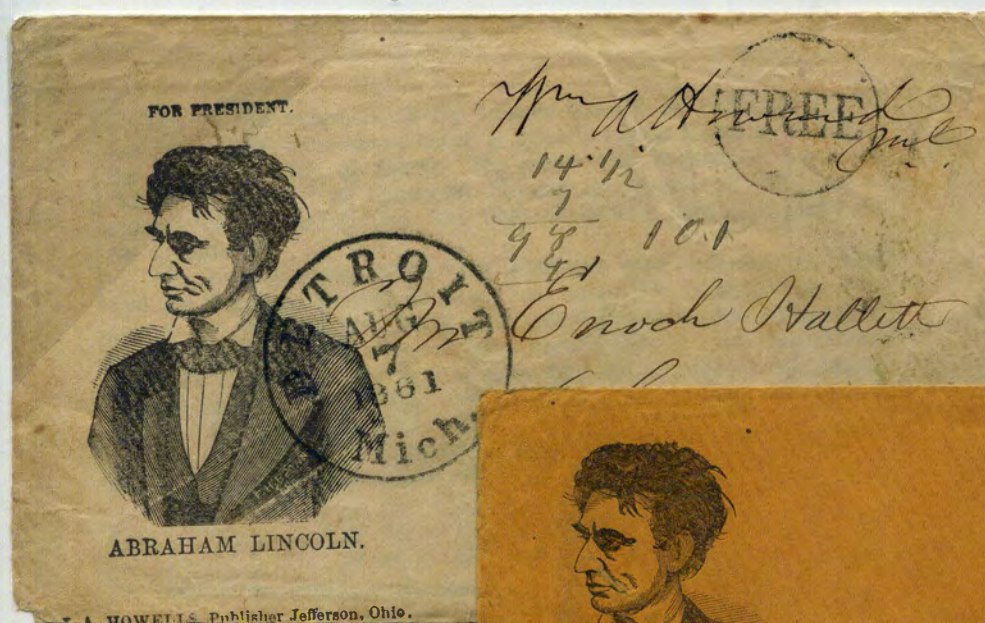 FOR PRESIDENT.
Wm A Howard
M.C.
FREE
14 1/2
7
98 101
DETROIT
AUG
7
1861
Mich.
Mr Enoch Hallett
ABRAHAM LINCOLN.
J. A. HOWELLS, Publisher Jefferson, Ohio.